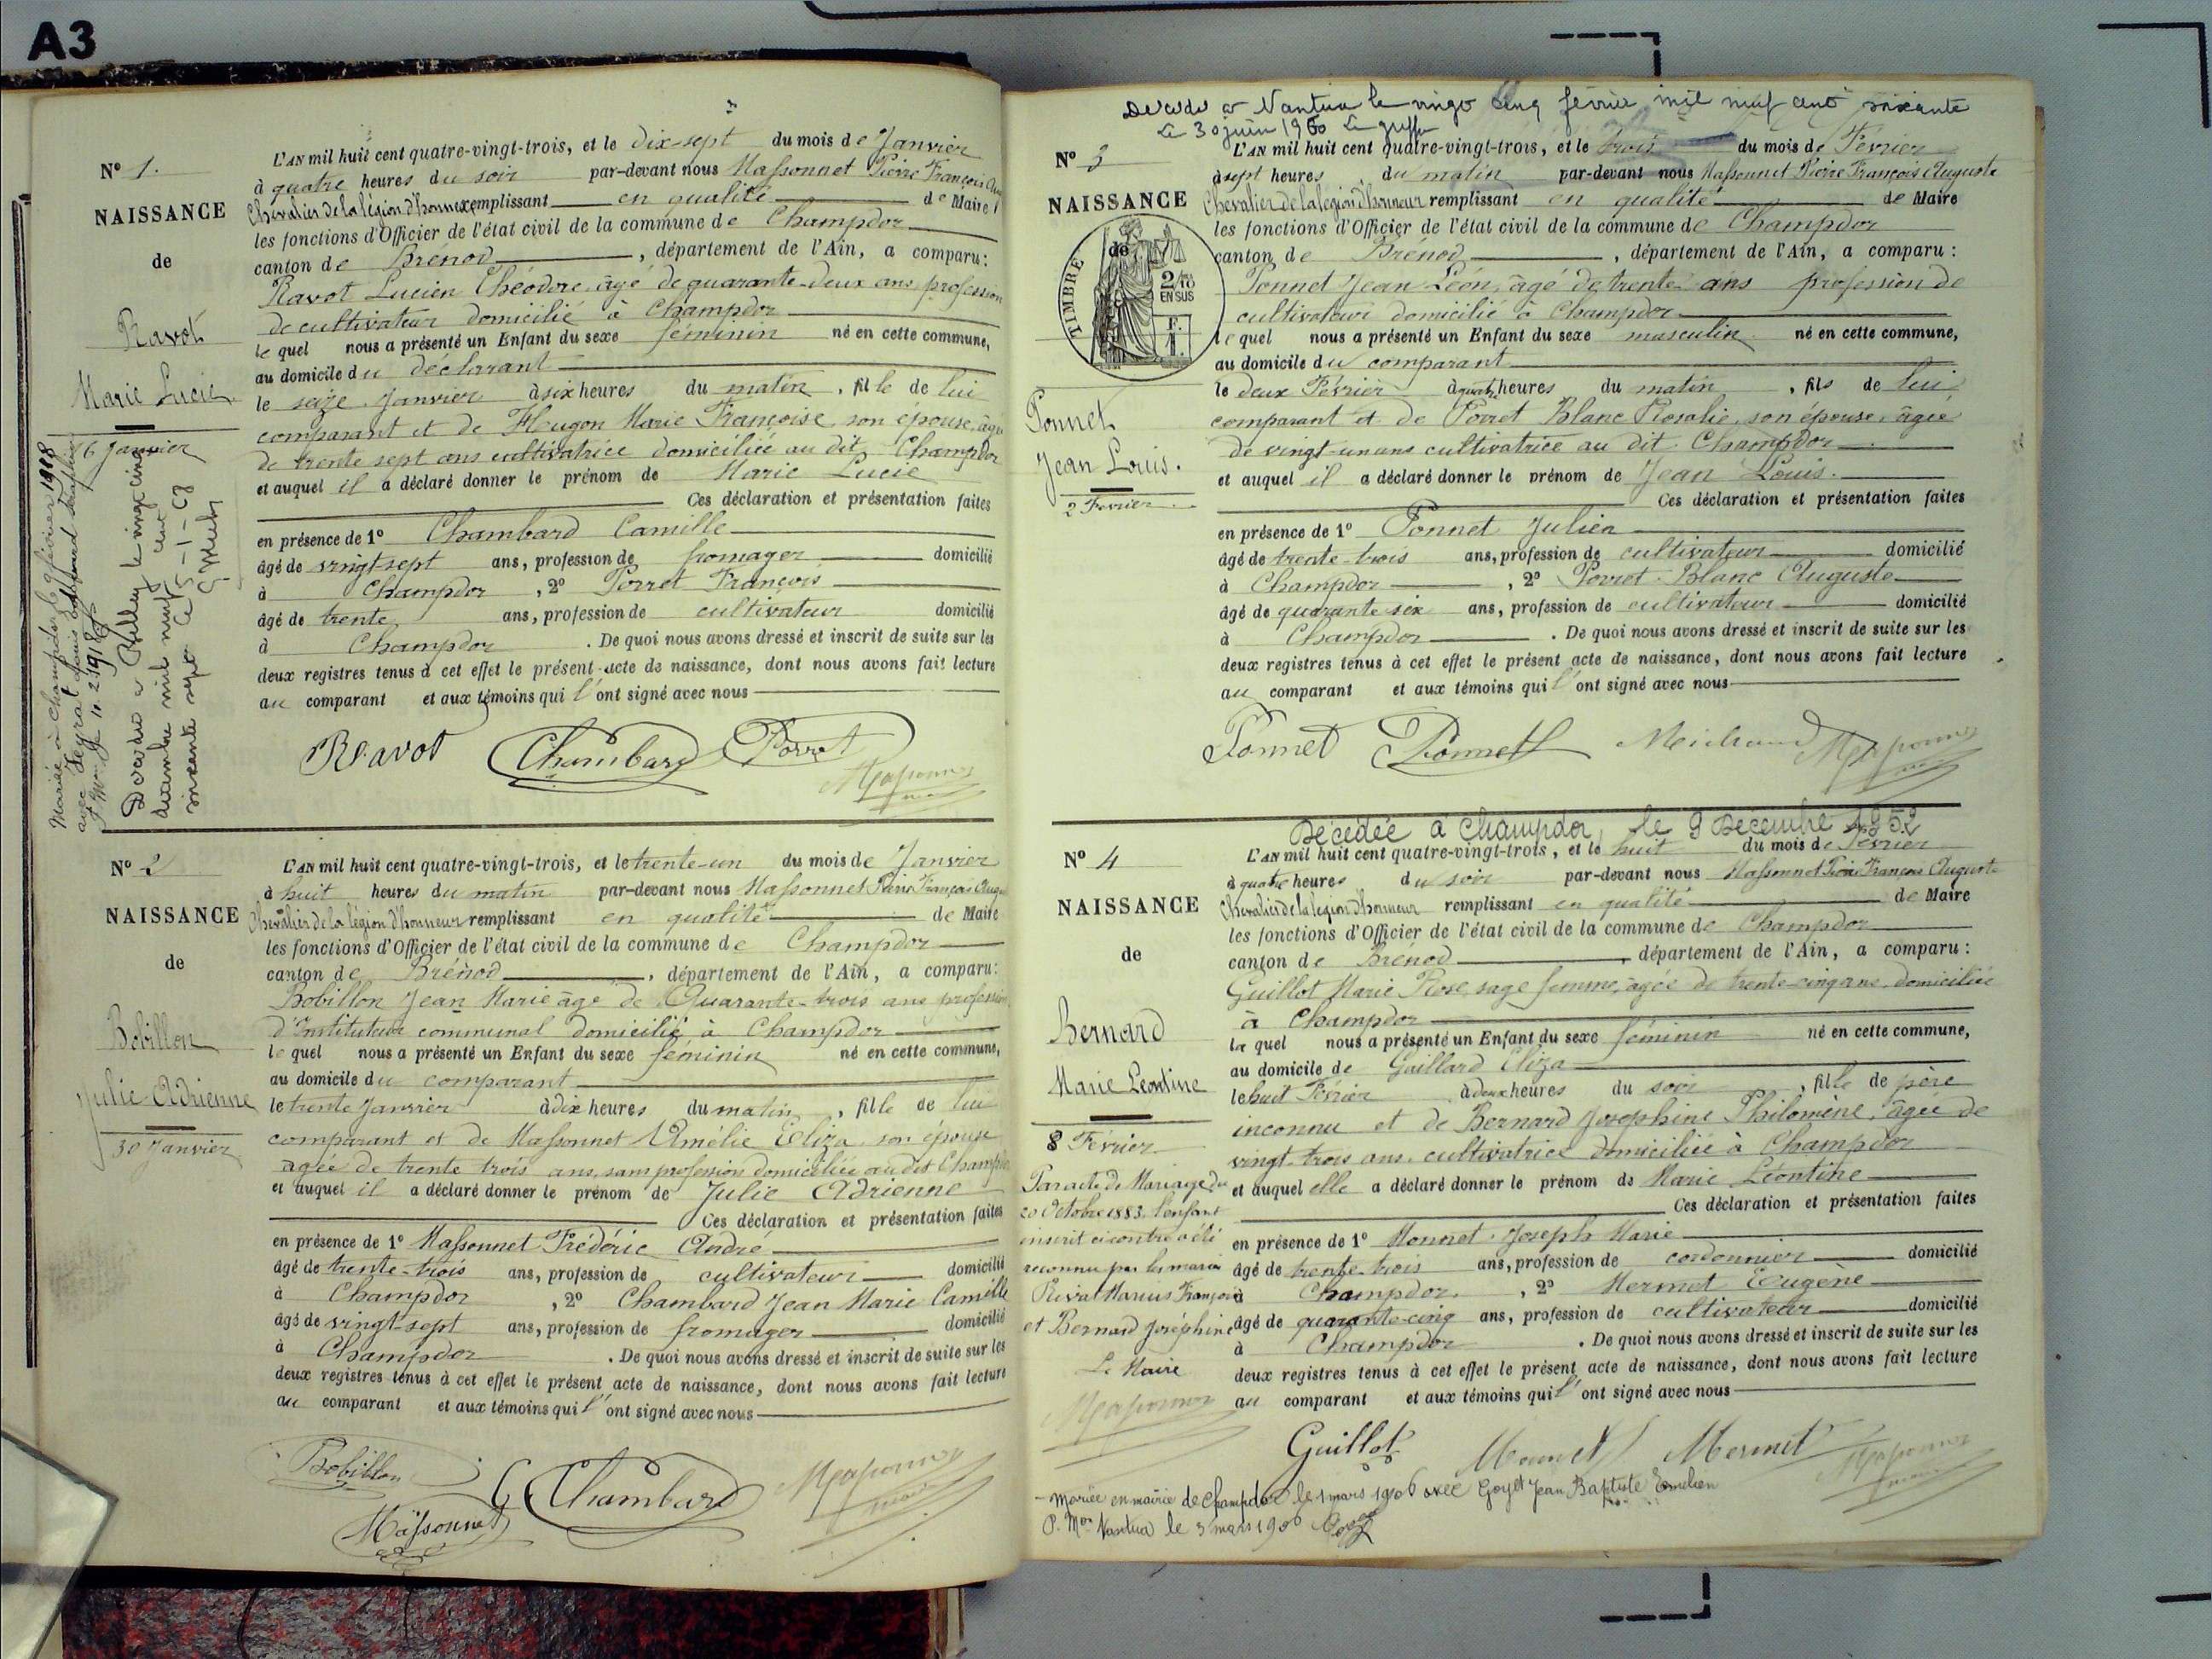 A3
N° 1.
NAISSANCE
de
Ravot
Marie Lucie
16 Janvier
Mariée à Champdor le 9 février 1918
avec Seyrat Louis
Décédée à Belley le vingt cinq
décembre mil neuf cent
soixante sept Ce 5-1-68
L'AN mil huit cent quatre-vingt-trois, et le dix-sept du mois de Janvier
à quatre heures du soir par-devant nous Massonnet Pierre François
Chevalier de la légion d'honneur remplissant en qualité de Maire
les fonctions d'Officier de l'état civil de la commune de Champdor
canton de Brénod, département de l'Ain, a comparu:
Ravot Lucien Théodore, âgé de quarante-deux ans profession
de cultivateur domicilié à Champdor
le quel nous a présenté un Enfant du sexe féminin né en cette commune,
au domicile du déclarant
le seize Janvier à six heures du matin, fille de lui
comparant et de Hugon Marie Françoise son épouse, âgée
de trente sept ans cultivatrice domiciliée au dit Champdor
et auquel il a déclaré donner le prénom de Marie Lucie
Ces déclaration et présentation faites
en présence de 1° Chambard Camille
âgé de vingt-sept ans, profession de fromager domicilié
à Champdor, 2° Porret François
âgé de trente ans, profession de cultivateur domicilié
à Champdor. De quoi nous avons dressé et inscrit de suite sur les
deux registres tenus à cet effet le présent acte de naissance, dont nous avons fait lecture
au comparant et aux témoins qui l'ont signé avec nous
Ravot Chambard Porret
Massonnet
N° 2
NAISSANCE
de
Bobillon
Julie Adrienne
30 Janvier
L'AN mil huit cent quatre-vingt-trois, et le trente-un du mois de Janvier
à huit heures du matin par-devant nous Massonnet Pierre François Auguste
Chevalier de la légion d'honneur remplissant en qualité de Maire
les fonctions d'Officier de l'état civil de la commune de Champdor
canton de Brénod, département de l'Ain, a comparu:
Bobillon Jean Marie âgé de Quarante-trois ans profession
d'Instituteur communal domicilié à Champdor
le quel nous a présenté un Enfant du sexe féminin né en cette commune,
au domicile du comparant
le trente Janvier à dix heures du matin, fille de lui
comparant et de Massonnet Amélie Eliza son épouse
agée de trente trois ans, sans profession domiciliée au dit Champdor
et auquel il a déclaré donner le prénom de Julie Adrienne
Ces déclaration et présentation faites
en présence de 1° Massonnet Frédéric André
âgé de trente-trois ans, profession de cultivateur domicilié
à Champdor, 2° Chambard Jean Marie Camille
âgé de vingt-sept ans, profession de fromager domicilié
à Champdor. De quoi nous avons dressé et inscrit de suite sur les
deux registres tenus à cet effet le présent acte de naissance, dont nous avons fait lecture
au comparant et aux témoins qui l'ont signé avec nous
Bobillon Chambard Massonnet
Massonnet
Décédé à Nantua le vingt cinq février mil neuf cent soixante
Le 30 juin 1960 Le greffier
N° 3
NAISSANCE
de
TIMBRE
2/10
EN SUS
Ponnet
Jean Louis.
2 Fevrier
L'AN mil huit cent quatre-vingt-trois, et le trois du mois de Février
à sept heures du matin par-devant nous Massonnet Pierre François Auguste
Chevalier de la légion d'honneur remplissant en qualité de Maire
les fonctions d'Officier de l'état civil de la commune de Champdor
canton de Brénod, département de l'Ain, a comparu:
Ponnet Jean Léon, âgé de trente ans profession de
cultivateur domicilié à Champdor
le quel nous a présenté un Enfant du sexe masculin né en cette commune,
au domicile du comparant
le deux Février à quatre heures du matin, fils de lui
comparant et de Porret Blanc Rosalie, son épouse, âgée
de vingt-un ans cultivatrice au dit Champdor
et auquel il a déclaré donner le prénom de Jean Louis.
Ces déclaration et présentation faites
en présence de 1° Ponnet Julien
âgé de trente-trois ans, profession de cultivateur domicilié
à Champdor, 2° Porret-Blanc Auguste
âgé de quarante six ans, profession de cultivateur domicilié
à Champdor. De quoi nous avons dressé et inscrit de suite sur les
deux registres tenus à cet effet le présent acte de naissance, dont nous avons fait lecture
au comparant et aux témoins qui l'ont signé avec nous
Ponnet Ponnet Massonnet
Décédée à Champdor, le 9 Décembre 1952
N° 4
NAISSANCE
de
Bernard
Marie Léontine
8 Février
Par acte de Mariage du
20 Octobre 1883, l'enfant
inscrit ci contre a été
reconnu par les mariés
Privat Marius François
et Bernard Joséphine
Le Maire
Massonnet
L'AN mil huit cent quatre-vingt-trois, et le huit du mois de Février
à quatre heures du soir par-devant nous Massonnet Pierre François Auguste
Chevalier de la légion d'honneur remplissant en qualité de Maire
les fonctions d'Officier de l'état civil de la commune de Champdor
canton de Brénod, département de l'Ain, a comparu:
Guillot Marie Rose, sage femme, âgée de trente-cinq ans, domiciliée
à Champdor
la quel nous a présenté un Enfant du sexe féminin né en cette commune,
au domicile de Gaillard Eliza
le huit Février à deux heures du soir, fille de père
inconnu et de Bernard Josephine Philomène, âgée de
vingt-trois ans, cultivatrice domiciliée à Champdor
et auquel elle a déclaré donner le prénom de Marie Léontine
Ces déclaration et présentation faites
en présence de 1° Monnet Joseph Marie
âgé de trente-trois ans, profession de cordonnier domicilié
à Champdor, 2° Mermet Eugène
âgé de quarante-cinq ans, profession de cultivateur domicilié
à Champdor. De quoi nous avons dressé et inscrit de suite sur les
deux registres tenus à cet effet le présent acte de naissance, dont nous avons fait lecture
au comparant et aux témoins qui l'ont signé avec nous
Guillot Monnet Mermet Massonnet
- Mariée en mairie de Champdor le 1 mars 1906 avec Goyet Jean Baptiste Emelien
P. Mon Nantua le 3 mars 1906